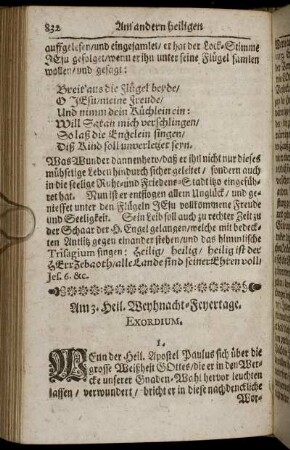 832 Am andern heiligen
auffgelesen/und eingesamlet/ er hat der Lock-Stimme
JEsu gefolget/wenn er ihn unter seine Flügel samlen
wollen/und gesagt:
Breit' aus die Flügel beyde/
O JEsu/meine Freude/
Und nimm dein Küchlein ein:
Will Satan mich verschlingen/
So laß die Engelein singen/
Diß Kind soll unverletzet seyn.
Was Wunder dannenhero/daß er ihn nicht nur dieses
mühselige Leben hindurch sicher geleitet/ sondern auch
in die seelige Ruhe- und Friedens-Stadt itzo eingefüh-
ret hat. Nun ist er entflogen allem Unglück/ und ge-
niesset unter den Flügeln JEsu vollkommene Freude
und Seeligkeit. Sein Leib soll auch zu rechter Zeit zu
der Schaar der H. Engel gelangen/welche mit bedeck-
ten Antlitz gegen einander stehen/und das himmlische
Trisagium singen: Heilig/ heilig/ heilig ist der
HErr Zebaoth/alle Lande sind seiner Ehren voll/
Jes. 6. &c.
Am 3. Heil. Weyhnacht-Feyertage.
EXORDIUM.
1.
WEnn der Heil. Apostel Paulus sich über die
grosse Weißheit GOttes/die er in den Wer-
cke unserer Gnaden-Wahl hervor leuchten
lassen/ verwundert/ bricht er in diese nachdenckliche
Wor-